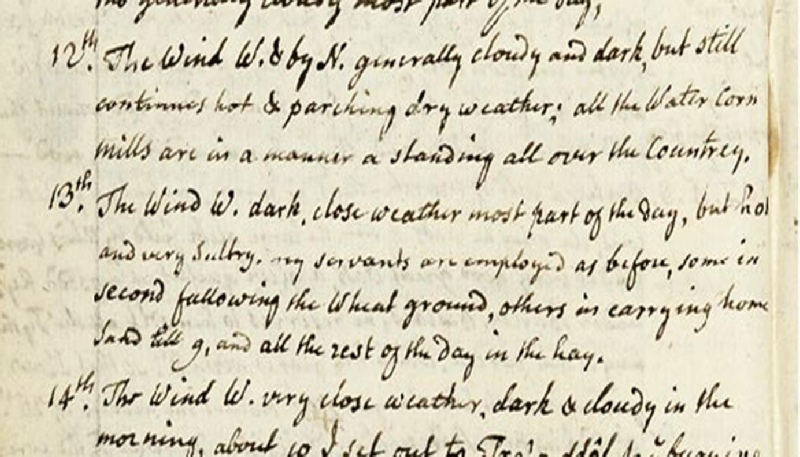 the generally cloudy most part of the day,
12th. The Wind W. & by N. generally cloudy and dark, but still
continues hot & parching dry weather; all the Water Corn
mills are in a manner a standing all over the Countrey.
13th. The Wind W. dark, close weather most part of the day, but hot
and very Sultry. my servants are employed as before, some in
second fallowing the Wheat ground, others in carrying home
Sand till 9, and all the rest of the day in the hay.
14th. The Wind W. very close weather, dark & cloudy in the
morning, about 10 I set out to